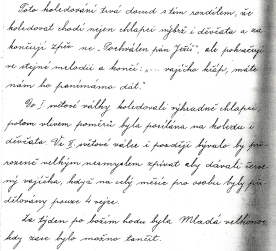 Toto koledování trvá dosud s tím rozdílem, že
koledovat chodí nejen chlapci nýbrž i děvčata a za
končují zpěv ne „Pochválen pán Ježíš", ale pokračují
ve stejné melodii a končí: „.. vajíčko křáp, máte
nám ho panímámo dát."
Do I. světové války koledovali výhradně chlapci,
potom vlivem poměrů byla posílána na koledu i
děvčata. Ve II. světové válce i později bývalo by při
rozeně velkým nesmyslem zpívat aby dávali červe
ný vajíčka, když na celý měsíc pro osobu byly při
dělovány pouze 4 vejce.
Za týden po božím hodu byla Mladá velkonoce
kdy zase bylo možno tančit.